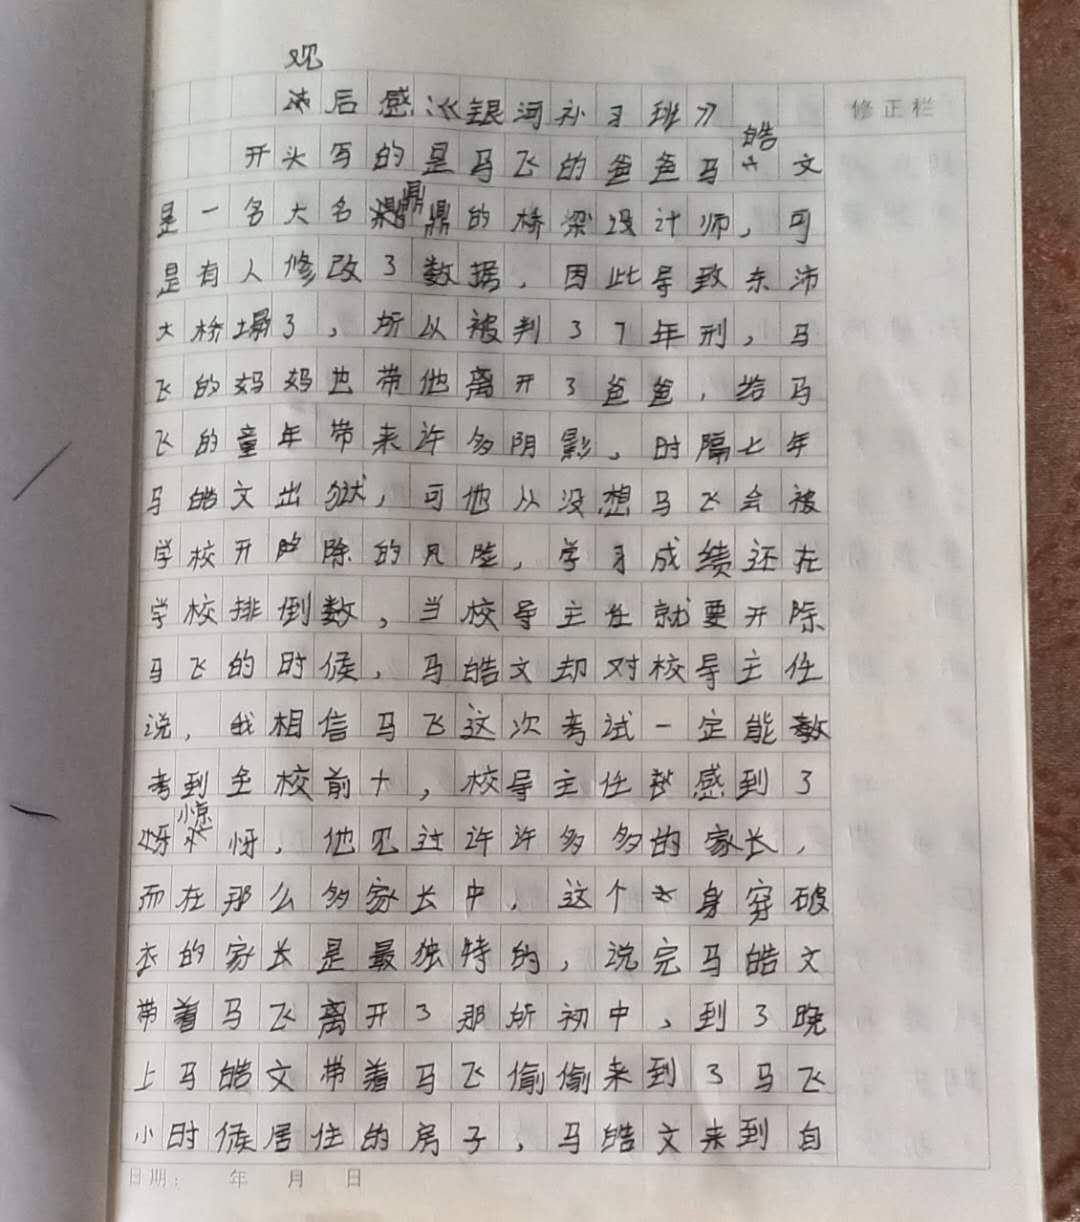 观后感:《银河补习班》
修正栏
开头写的是马飞的爸爸马皓文
是一名大名鼎鼎的桥梁设计师,可
是有人修改了数据,因此导致东沛
大桥塌了,所以被判了7年刑,马
飞的妈妈也带他离开了爸爸,给马
飞的童年带来许多阴影。时隔七年
马皓文出狱,可他从没想马飞会被
学校开除的风险,学习成绩还在
学校排倒数,当校导主任就要开除
马飞的时候,马皓文却对校导主任
说,我相信马飞这次考试一定能
考到全校前十,校导主任感到了
惊讶,他见过许许多多的家长,
而在那么多家长中,这个身穿破
衣的家长是最独特的,说完马皓文
带着马飞离开了那所初中,到了晚
上马皓文带着马飞偷偷来到了马飞
小时候居住的房子,马皓文来到自
日期: 年 月 日